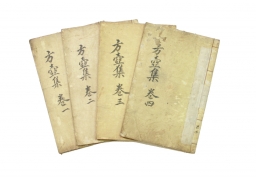 方壺集 卷一
方壺集 卷二
方壺集 卷三
方壺集 卷四